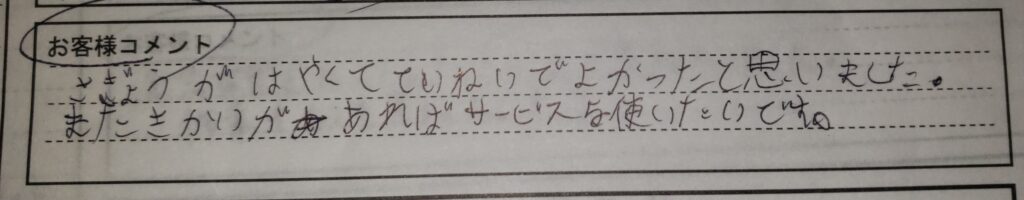 お客様コメント
さぎょうがはやくてていねいでよかったと思いました。
またきかいがあればサービスを使いたいです。